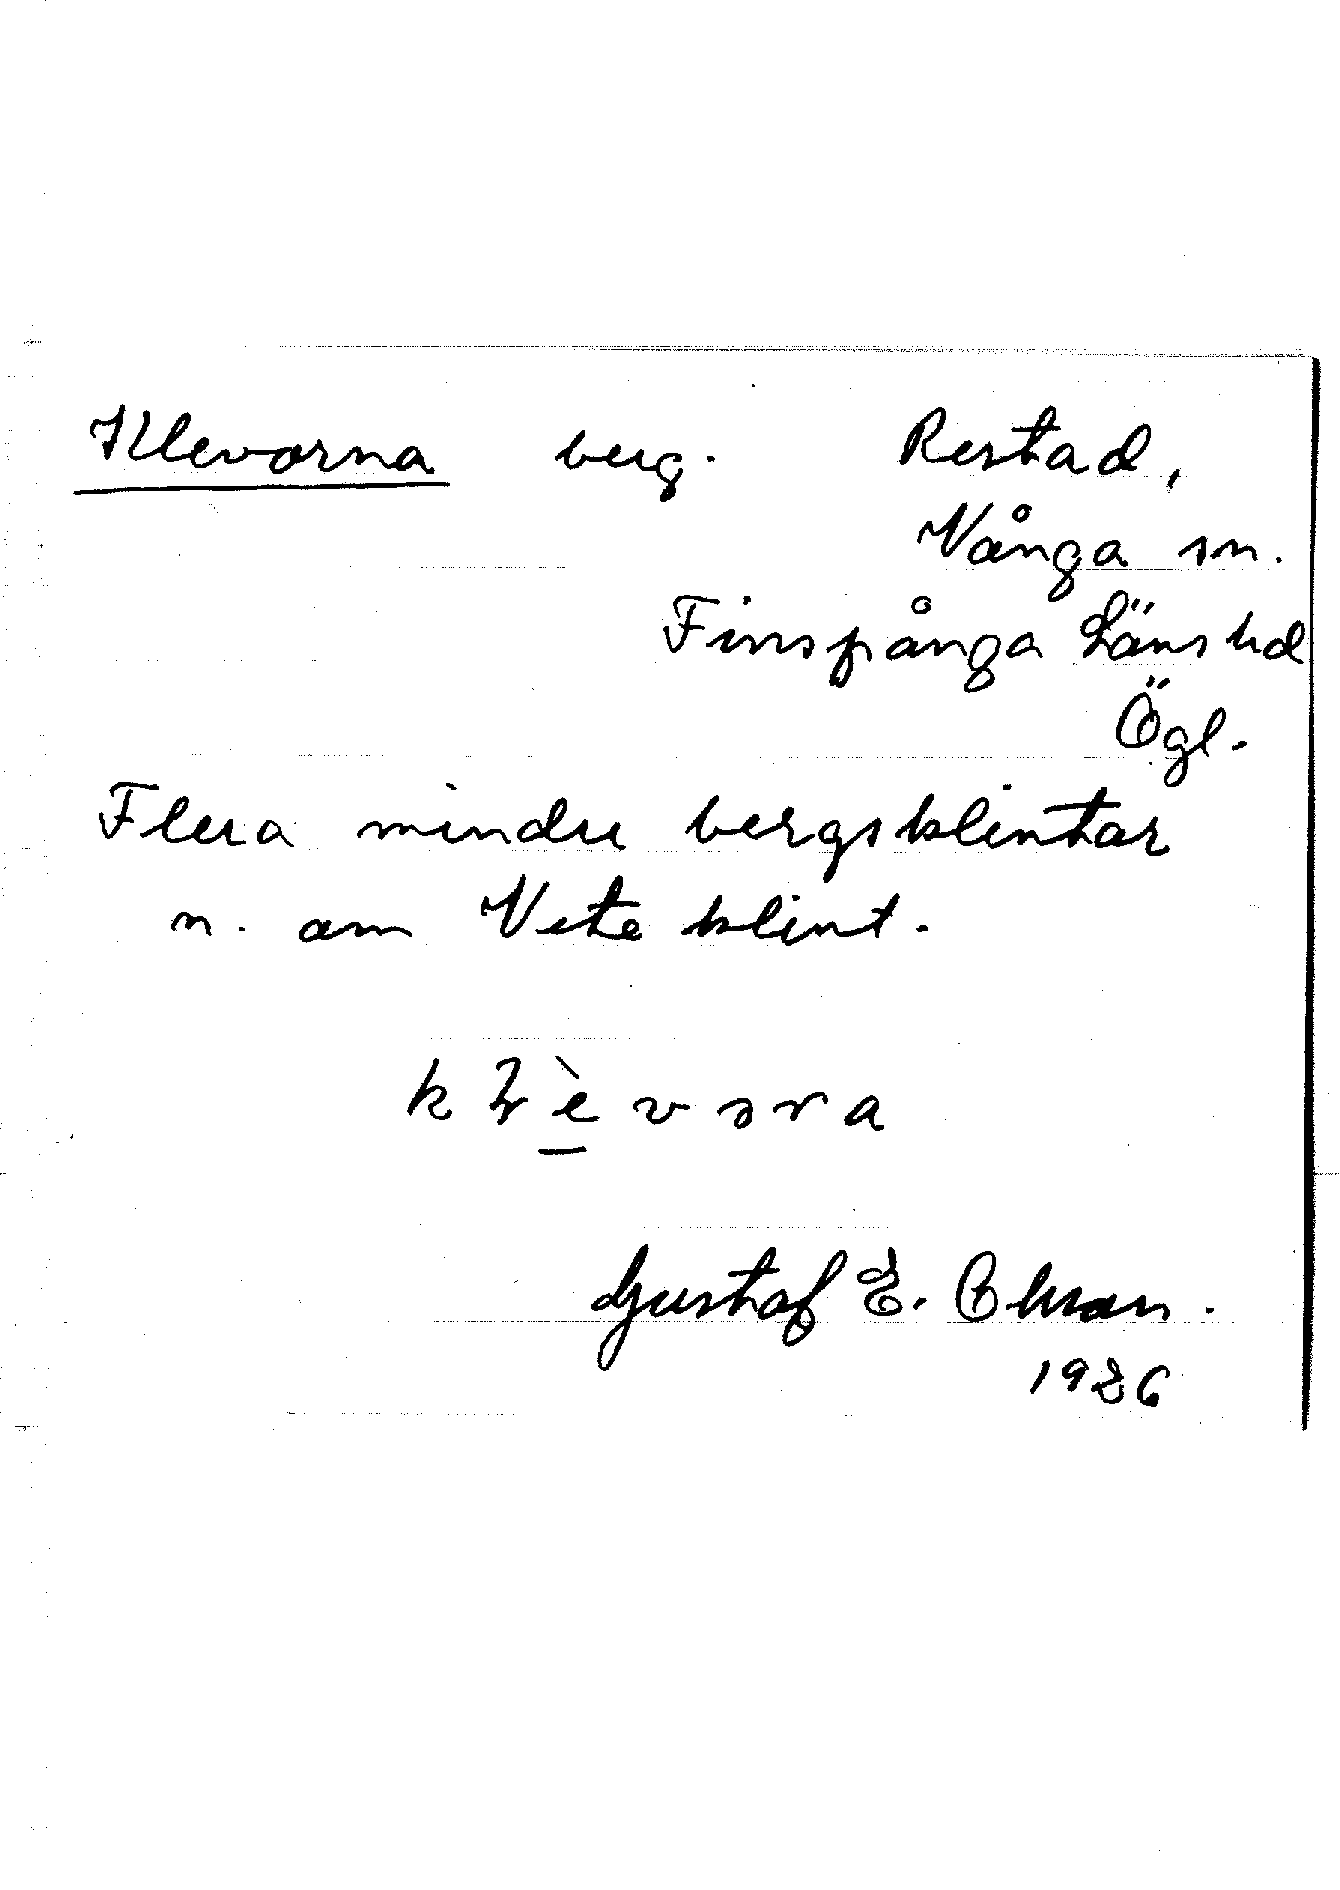 Klevorna berg. Restad,
Vånga sn.
Finspånga Läns hd
Ögl.
Flera mindre bergsklintar
n. om Vete klint.
kɽèvəra
Gustaf E. Ohson.
1936